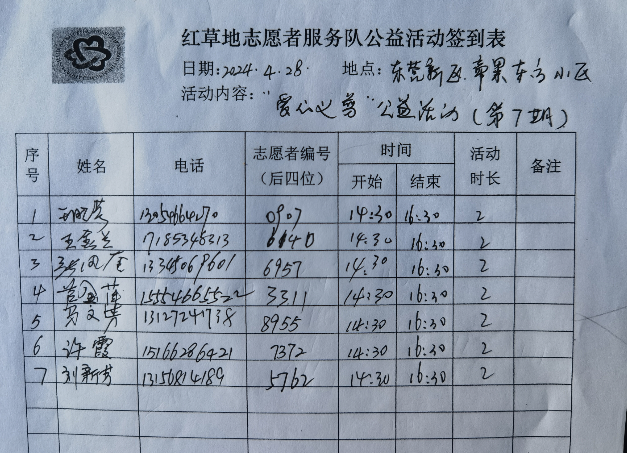 红草地志愿者服务队公益活动签到表
日期:2024.4.28. 地点:东荒新区.苹果东方小区
活动内容:"爱心义剪"公益活动(第7期)
序号 姓名 电话 志愿者编号(后四位) 时间 开始 结束 活动时长 备注
1 0907 14:30 16:30 2
2 王 兰 6640 14:30 16:30 2
3 13345069601 6957 14:30 16:30 2
4 萍 15554665522 3311 14:30 16:30 2
5 文 13127241738 8955 14:30 16:30 2
6 许霞 15166286421 7372 14:30 16:30 2
7 刘新芳 13156814189 5762 14:30 16:30 2